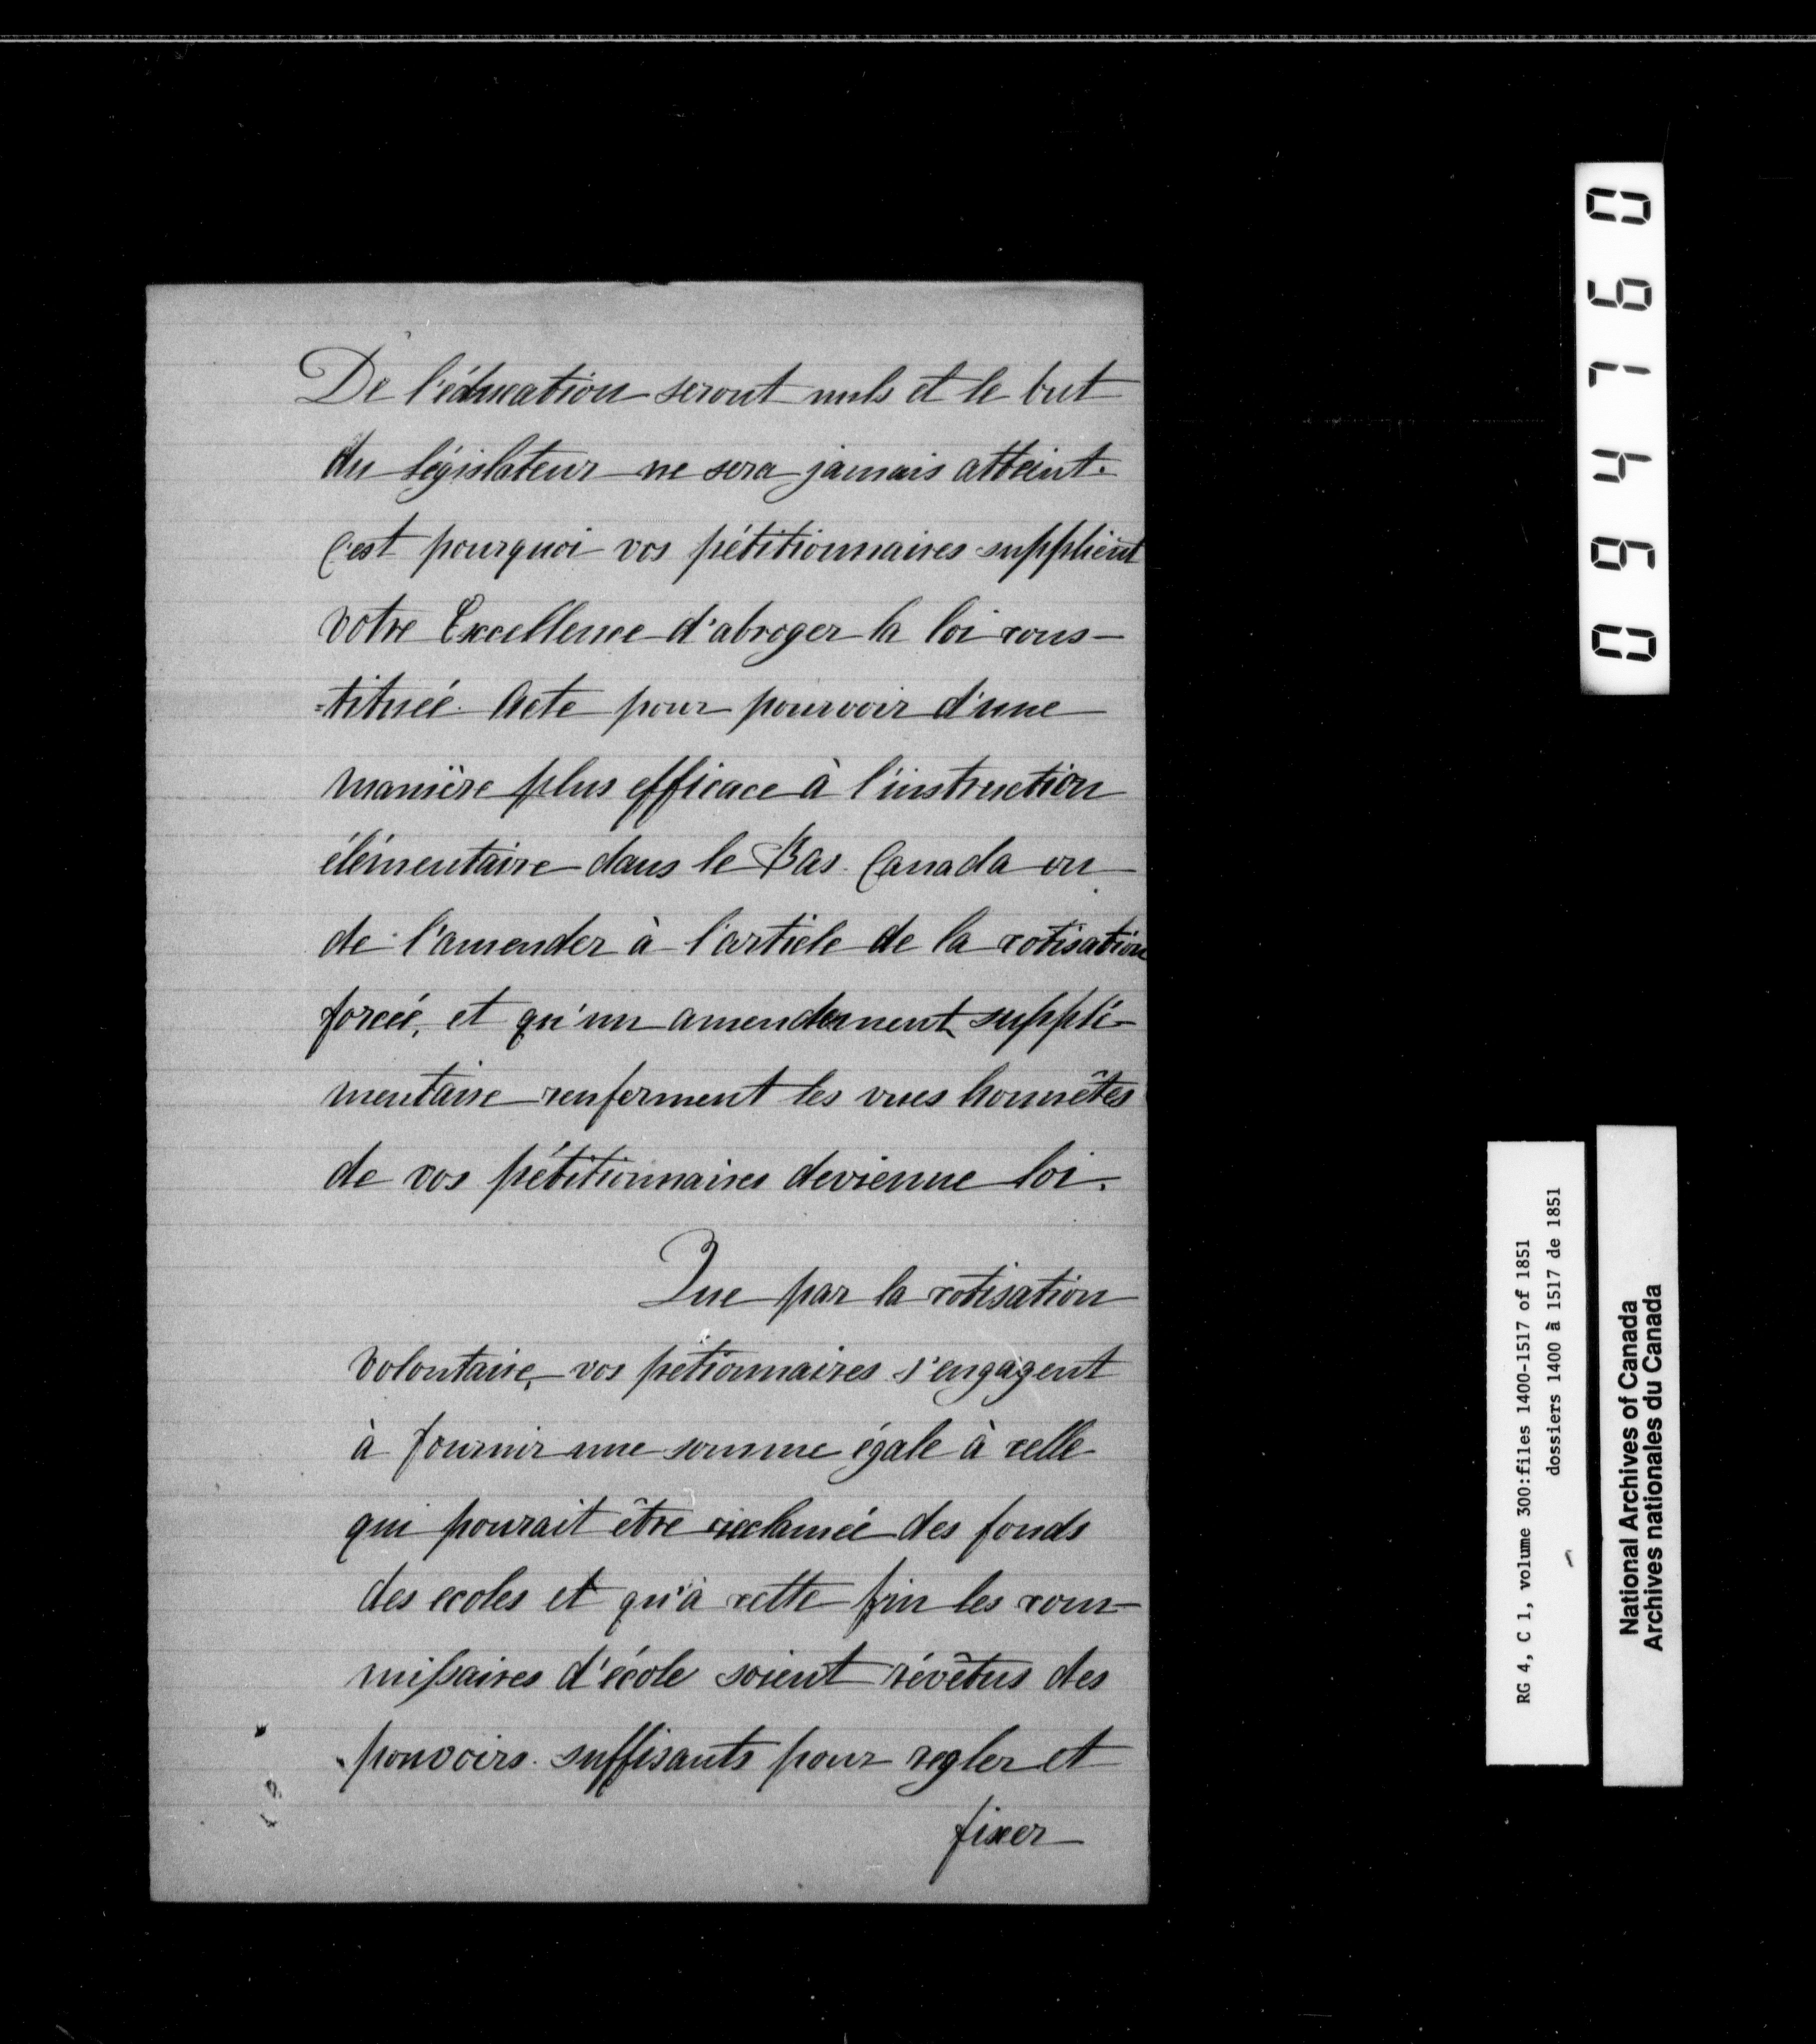 De l'éducation seront nuls et le but
du législateur ne sera jamais atteint.
C'est pourquoi vos pétitionnaires supplient
votre Excellence d'abroger la loi cons-
=tituée. Acte pour pourvoir d'une
manière plus efficace à l'instruction
élémentaire dans le Bas Canada ou
de l'amender à l'article de la cotisation
forcée, et qu'un amendement supplé-
mentaire renferment les vues honnêtes
de vos pétitionnaires devienne loi.
Que par la cotisation
volontaire, vos pétionnaires s'engagent
à fournir une somme égale à celle
qui pourait être reclamée des fonds
des ecoles et qu'à cette fin les com-
missaires d'école soient révêtus des
pouvoirs suffisants pour regler et
fixer
094760
RG 4, C 1, volume 300:files 1400-1517 of 1851
dossiers 1400 à 1517 de 1851
National Archives of Canada
Archives nationales du Canada